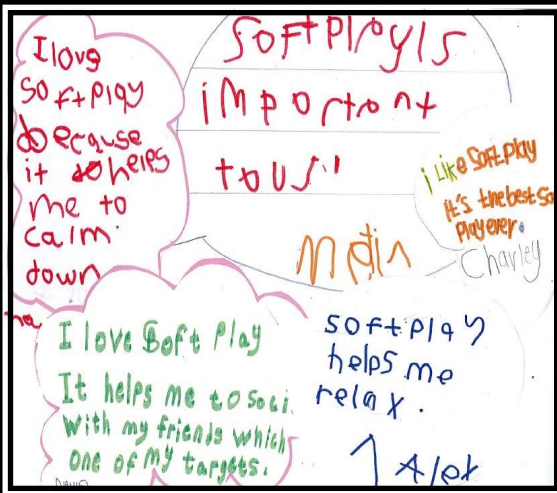 I love
soft play
because
it helps
me to
calm
down
Soft Play Is
important
to us"
Matin
i Like SOFt Play
it's the best So
Play ever.
Charley
I love Soft Play
It helps me to soci
With my friends which
one of my targets.
Soft Play
helps me
relax.
Alex